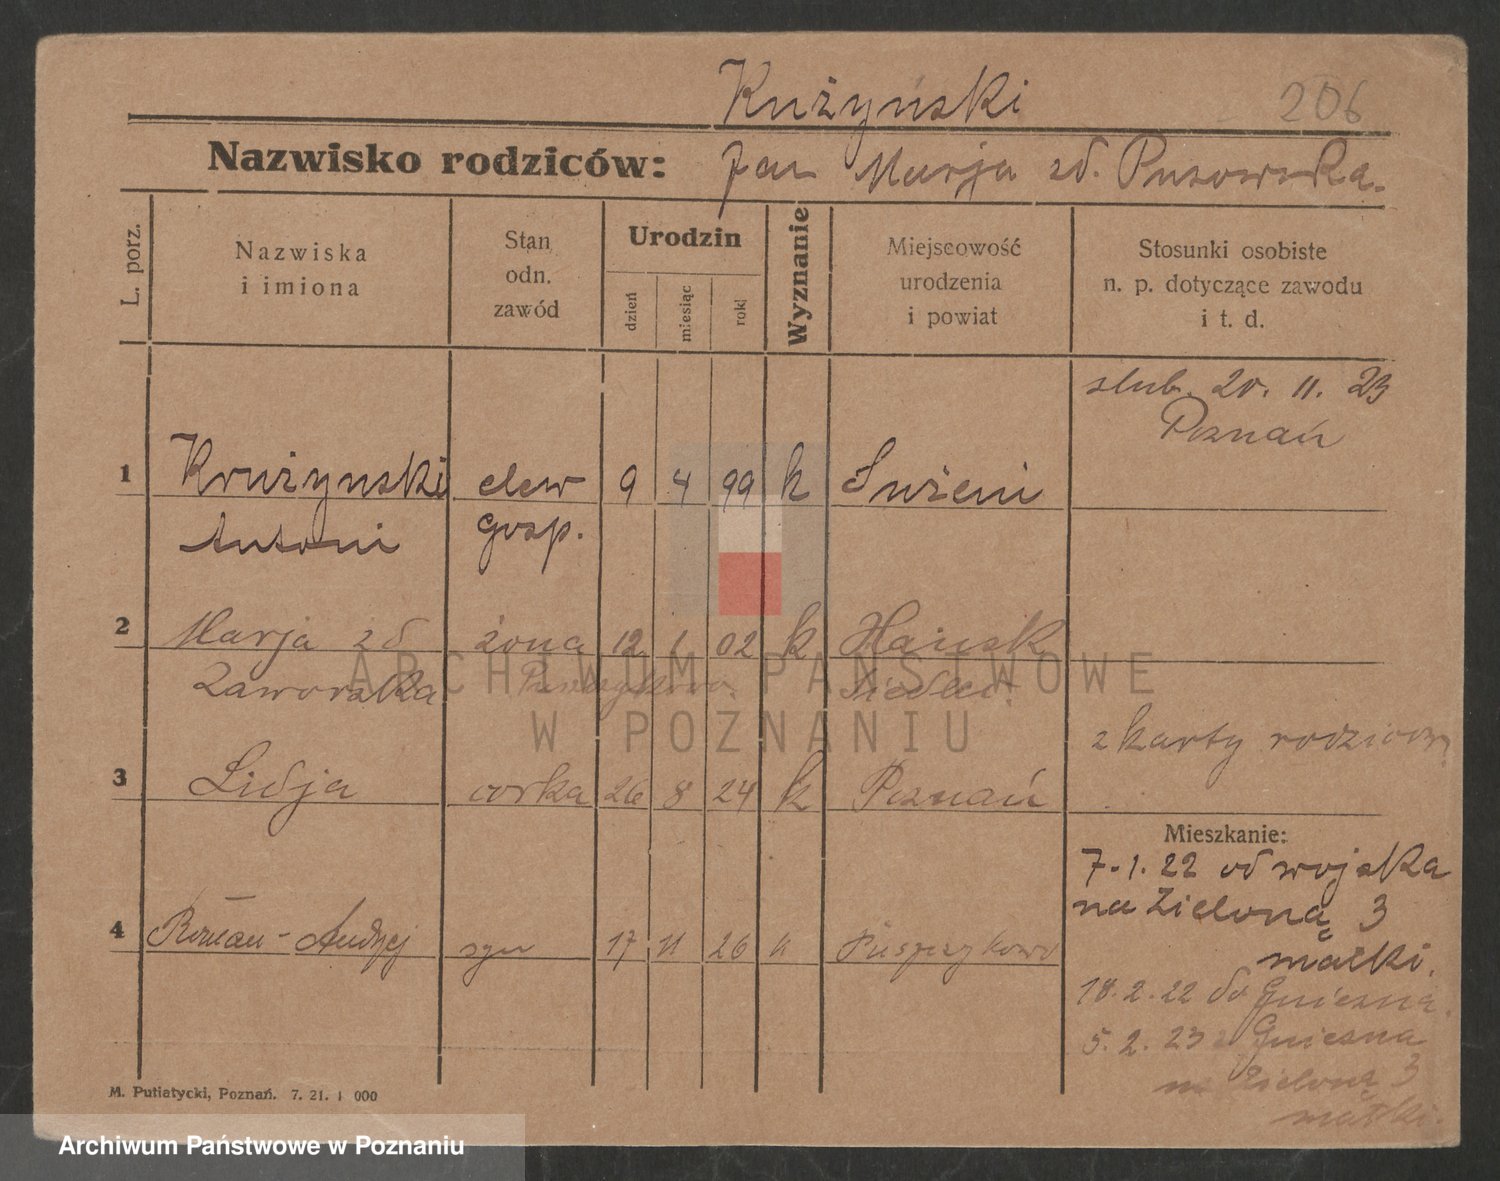 Kużyński
206
Nazwisko rodziców: Jan Marja zd.
L. porz.
Nazwiska i imiona
Stan odn. zawód
Urodzin
dzień
miesiąc
rok
Wyznanie
Miejscowość urodzenia i powiat
Stosunki osobiste n. p. dotyczące zawodu i t. d.
slub. 20. 11. 23
Poznań
1 Krużynski elew 9 4 99 k
Antoni gosp.
2 Marja zd żona 12 1 02 k
Zaworska
ARCHIWUM PAŃSTWOWE
W POZNANIU
z karty rodziców
3 Lidja corka 26 8 24 k Poznań
Mieszkanie:
7.1.22 od wojska
na Zieloną 3
matki.
4 Roman-Andrzej syn 17 11 26 k Pieszczykowo
18.2.22 do Gniezna.
5.2.23 z Gniezna
na Zieloną 3
matki.
M. Putiatycki, Poznań. 7. 21. 1 000
Archiwum Państwowe w Poznaniu